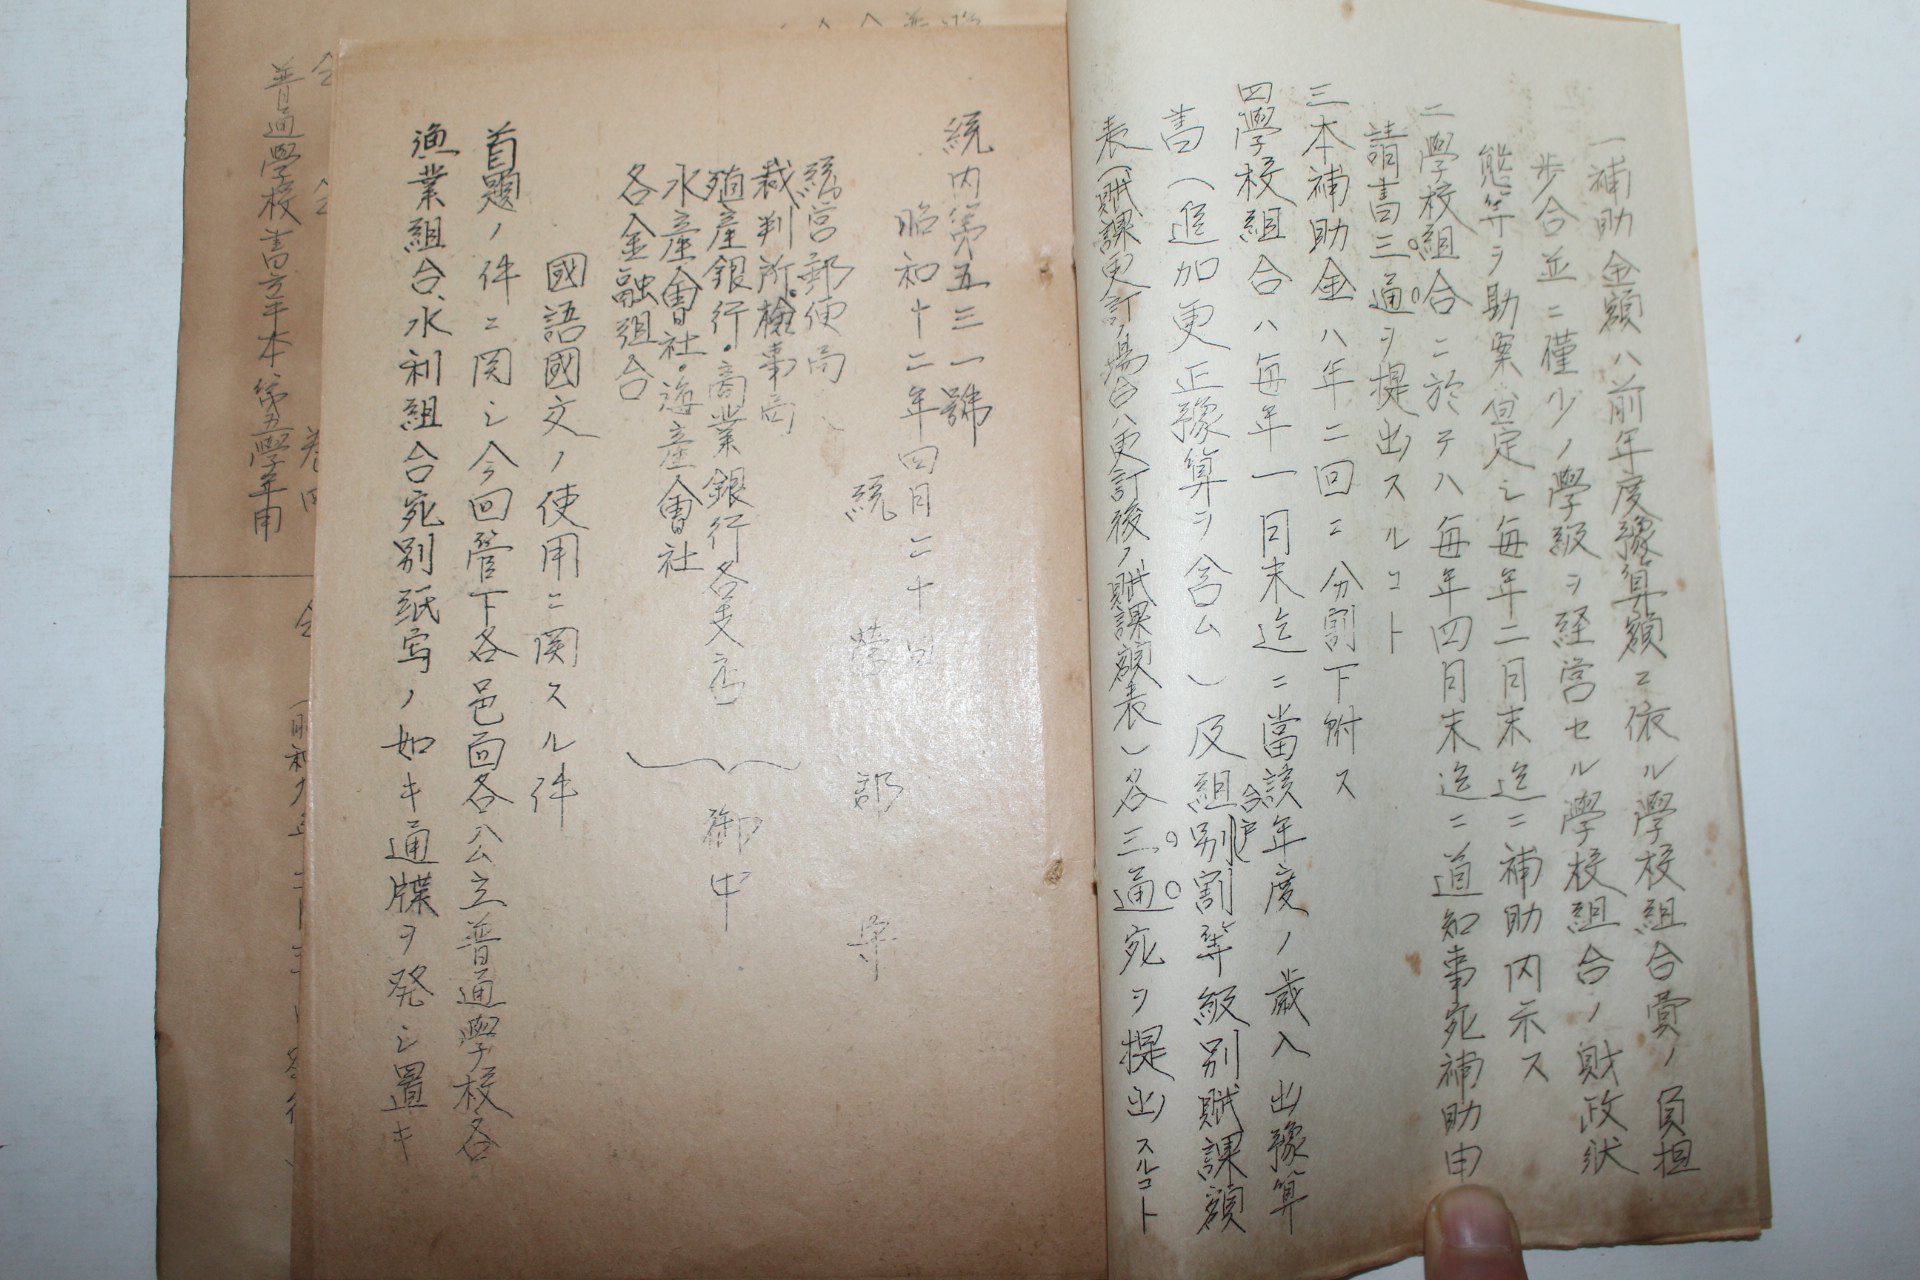 一補助金額ハ前年度豫算額ニ依ル學校組合費ノ負担
歩合並ニ僅少ノ學級ヲ経営セル學校組合ノ財政状
態等ヲ助案査定シ毎年二月末迄ニ補助内示ス
二學校組合ニ於テハ毎年四月末迄ニ道知事宛補助申
請書三通ヲ提出スルコト
三本補助金ハ年二回ニ分割下附ス
四學校組合ハ毎年一月末迄ニ當該年度ノ歳入出豫算
書(追加更正豫算ヲ含ム)及組合戸別割等級別賦課額
表(賦課更訂ノ場合ハ更訂後ノ賦課額表)各三通宛ヲ提出スルコト
統内第五三一號
昭和十二年四月二十日
統營郡守
統営郵便局
裁判所・檢事局
殖産銀行・商業銀行各支店
水産會社・海産會社
各金融組合
御中
國語國文ノ使用ニ関スル件
首題ノ件ニ関シ今回管下各邑面各公立普通學校各
漁業組合水利組合宛別紙写ノ如キ通牒ヲ発シ置キ
普通學校書方手本第五學年用